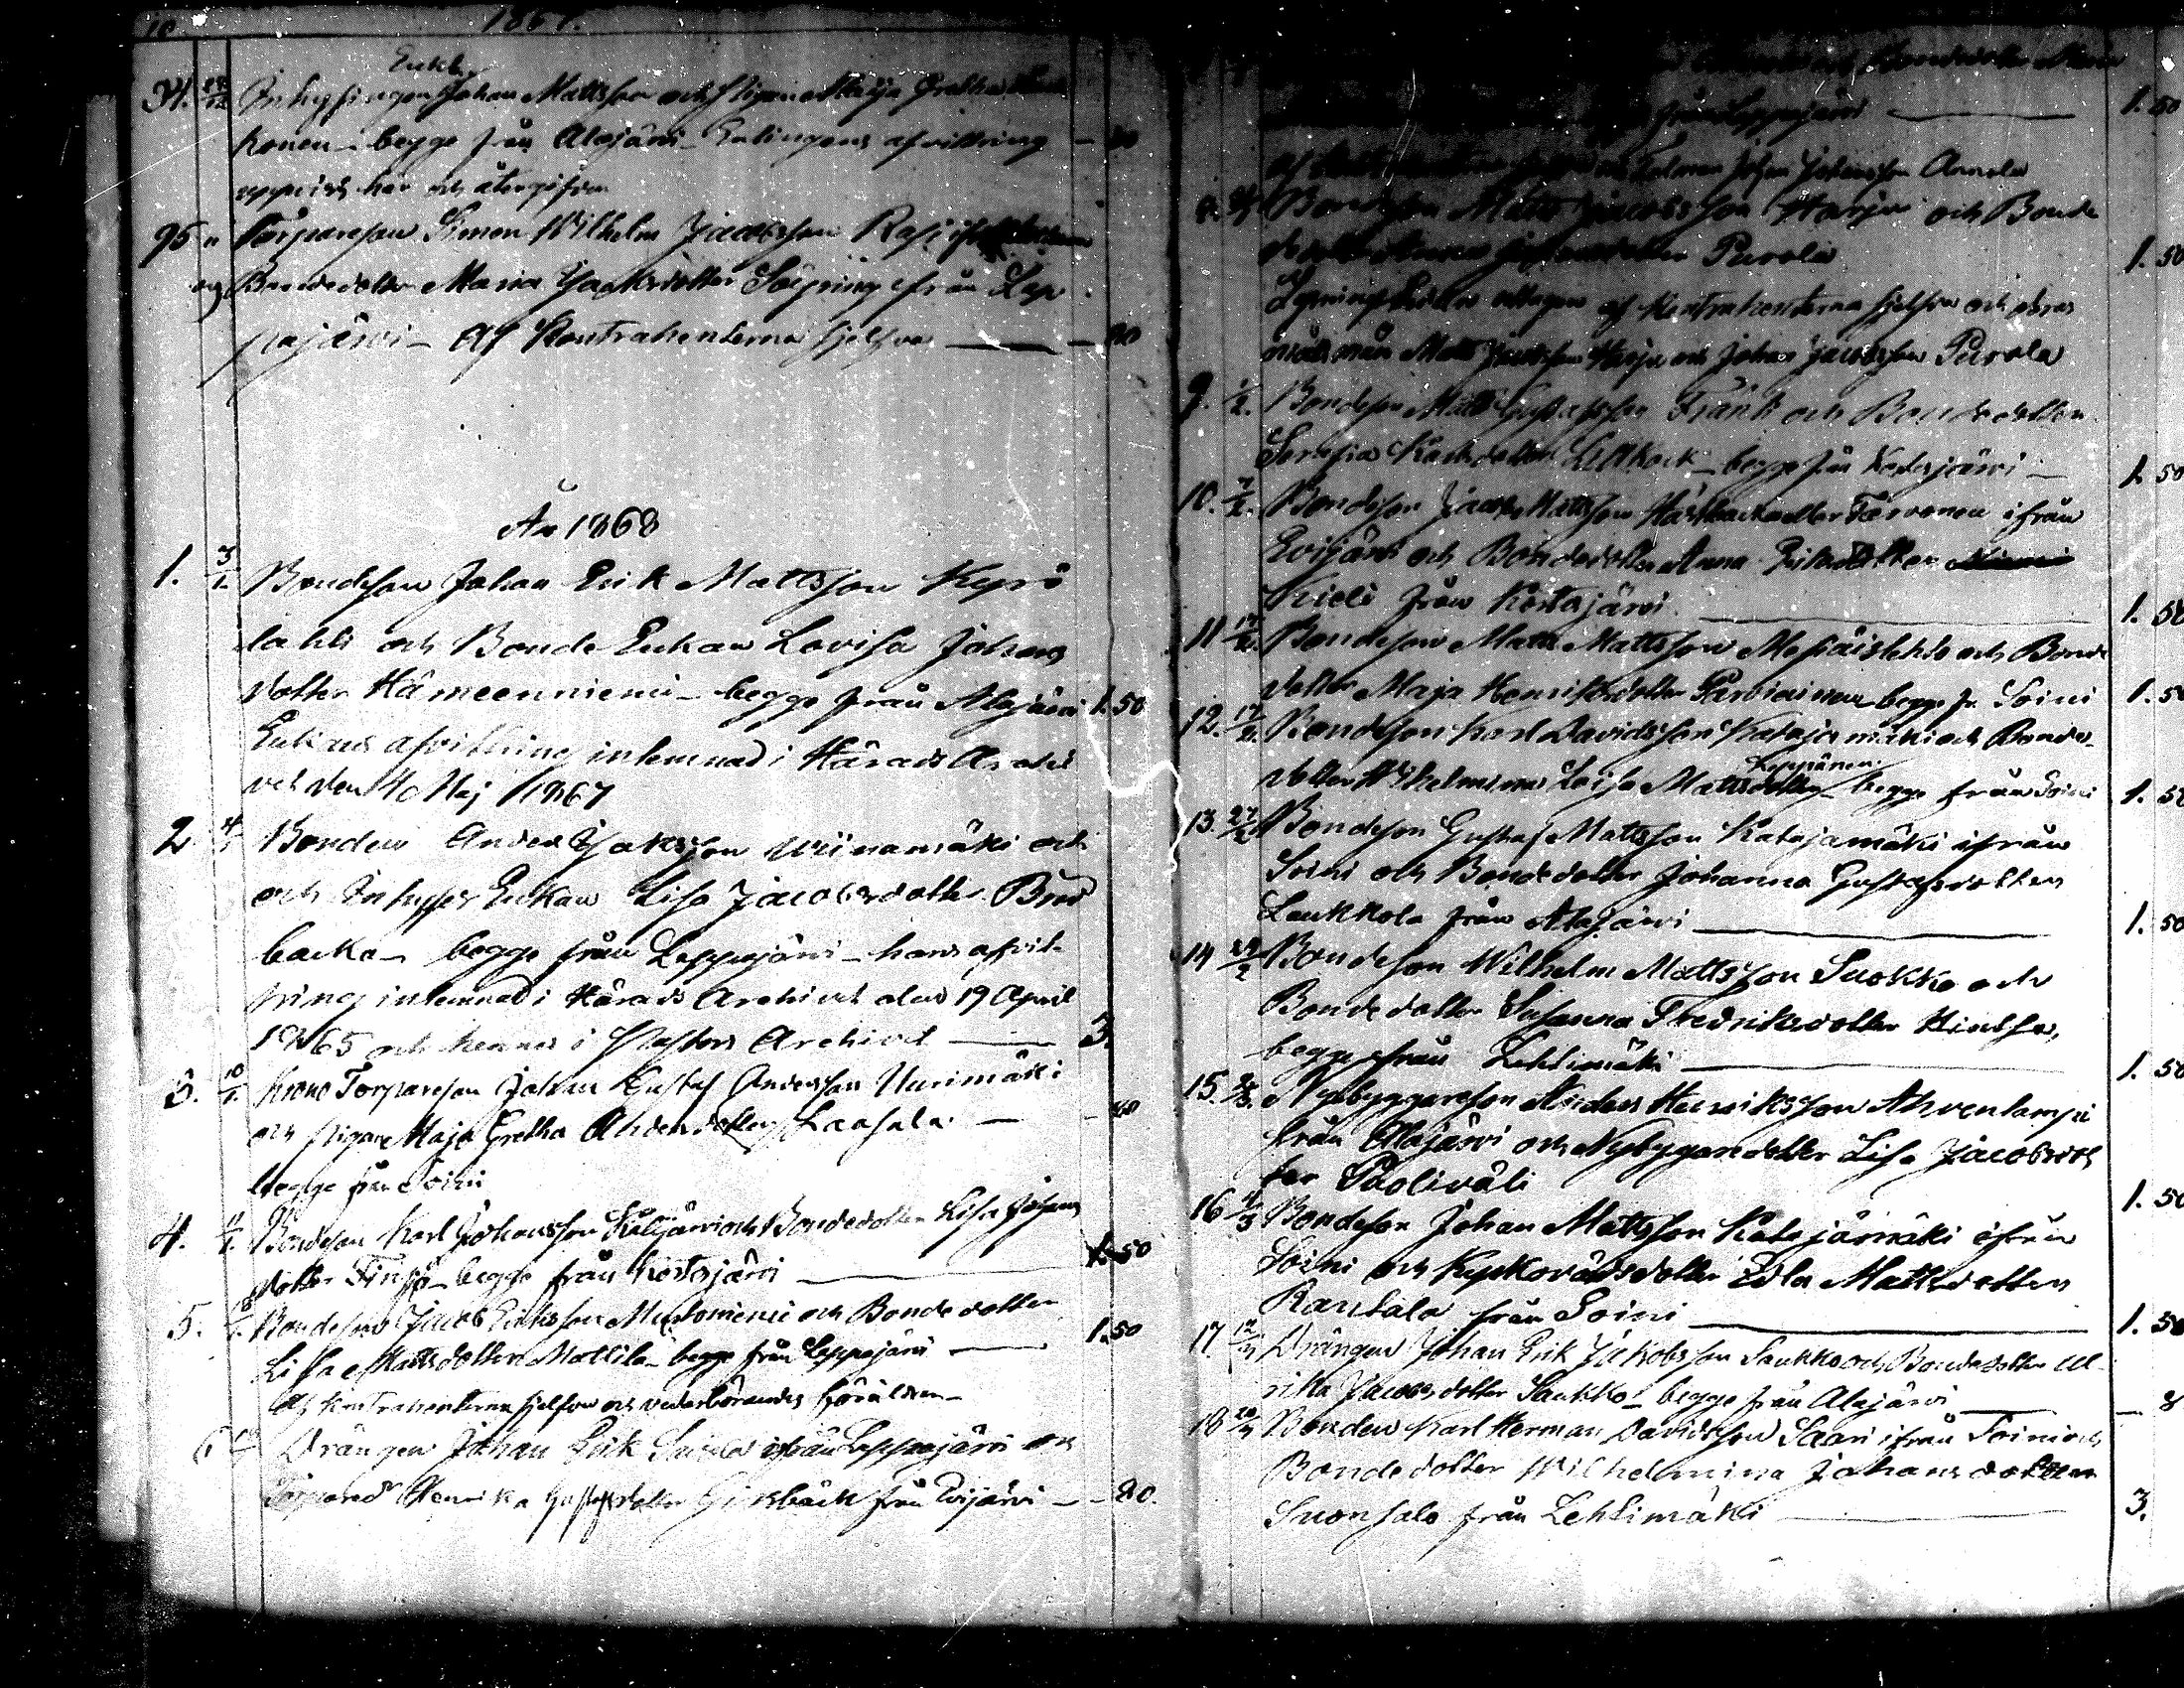 10 1867.
Enkl.
94. 28/12 Inhysingen Johan Mattsson och Pigan Maja Gretha
konen begge från Alajärvi Enlingens afvittring — 80
uppvist här och återgifven
95 " Torparesson Simon Wilhelm Jacobsson Rasi
och Bondedotter Maria Isacksdotter Sæpring från Lap
pajärvi - Af Kontrahenterna sjelfva — 80
År 1868
1. 3/1. Bondeson Johan Erik Mattsson Kyrö
lahti och Bonde Enkan Lovisa Johans
dotter Hämeenniemi - begge från Alajärvi 1.50
Enkans afvittring inlemnad i Härads Archi
vet den 10 Maj 1867
2 4/1 Bonden Anders Isaksson Wiinamäki och
och Inhyses Enkan Lisa Jacobsdotter Bred
backa - begge från Lappajärvi - hans afvit-
tring inlemnad i Härads Archivet den 19 April
1865 och hennes i Pastors Archivet — 3.
3. 10/1. Krono Torpareson Johan Gustaf Andersson Uurimäki
och pigan Maja Gretha Andersdotter Laasala — 80
begge från Soini
4. 11/1. Bondeson Karl Johansson och Bondedotter Lisa Johans
dotter Finnä - begge från Kortesjärvi — 1.50
5. 18/1. Bondeson Jacob Eriksson Mustoniemi och Bondedotter
Lisa Mattsdotter Mattila - begge från Lappajärvi — 1.50
Af Kontrahenterna sjelfva och vederbörandes föräldrar -
6 Drängen Johan Erik ifrån Lappajärvi och
Henrika Gustafsdotter från Evijärvi — 80.
och Bondedotter Maria
från Lappajärvi — 1.50
Johan Johansson Annala
8. Bondeson Matts Jacobsson Harju och Bonde
dotter Anna Purola 1.50
Lysning af Kontrahenterna sjelfva och deras
målsmän Matts Jacobsson Harju och Johan Jacobsson Purola
9. 1/2. Bondeson Matts Gustafsson Fränti och Bondedotter
Serafia Karlsdotter Lillkock - begge från Kortesjärvi — 1.50
10. 7/2. Bondeson Jacob Mattsson Härbacka eller Tervonen ifrån
Evijärvi och Bondedotter Anna Eriksdotter
Kieli från Kortesjärvi — 1.50
11 17/2. Bondeson Matts Mattsson Mesiäislehto och Bonde
dotter Maja Henriksdotter Parviainen begge fr. Soini 1.50
12. 17/2. Bondeson Karl Davidsson Katajamäki och Bonde-
Leppänen
dotter Wilhelmina Lovisa Mattsdotter begge från Soini 1.50
13. 27/2 Bondeson Gustaf Mattsson Katajamäki ifrån
Soini och Bondedotter Johanna Gustafsdotter
Laukkola från Alajärvi — 1.50
14 29/2 Bondeson Wilhelm Mattsson Suokko och
Bondedotter Susanna Fredriksdotter Hintsa,
begge från Lehtimäki — 1.50
15. 2/3. Nybyggareson Anders Henriksson Ahvenlampi
från Alajärvi och Nybyggaredotter Lisa Jacobsdot
ter Puoliväli 1.50
16 4/3 Bondeson Johan Mattsson Katajamäki ifrån
Soini och Kyrkovärdsdotter Eila Mattsdotter
Rantala från Soini — 1.50
17 12/3 Drängen Johan Erik Jakobsson Saukko och Bondedotter Ul-
rika Jacobsdotter Saukko - begge från Alajärvi — 8
18 20/3 Bonden Karl Herman Davidsson Saari ifrån Soini och
Bondedotter Wilhelmina Johansdotter
Suonsalo från Lehtimäki — 3.